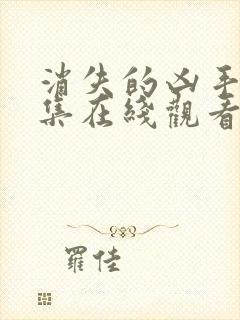 消失的凶手
集在綫觀看
羅佳